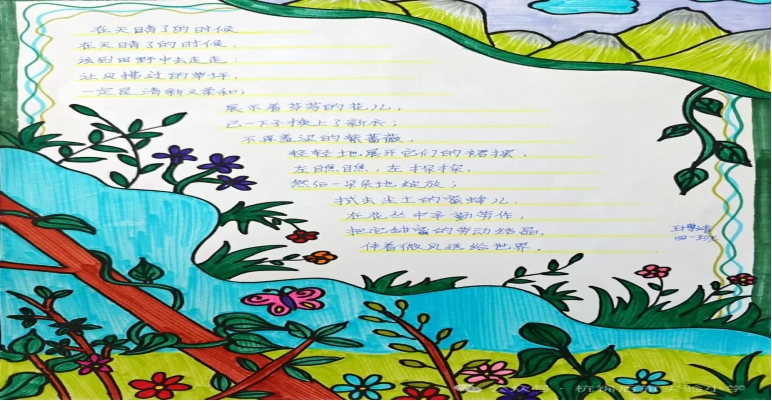 在天晴了的时候
在天晴了的时候,
该到田野中去走走:
让风拂过的草坪,
一定是清新又柔和;
展示着芬芳的花儿,
已一下子换上了新衣;
不再羞涩的紫蔷薇,
轻轻地展开它们的裙摆,
左瞧瞧,左探探,
然后一朵朵地绽放;
拭去尘土的蜜蜂儿,
在花丛中辛勤劳作,
把它甜蜜的劳动结晶,
伴着微风送给世界。
四一班
公众号·杭锦后旗实验小学